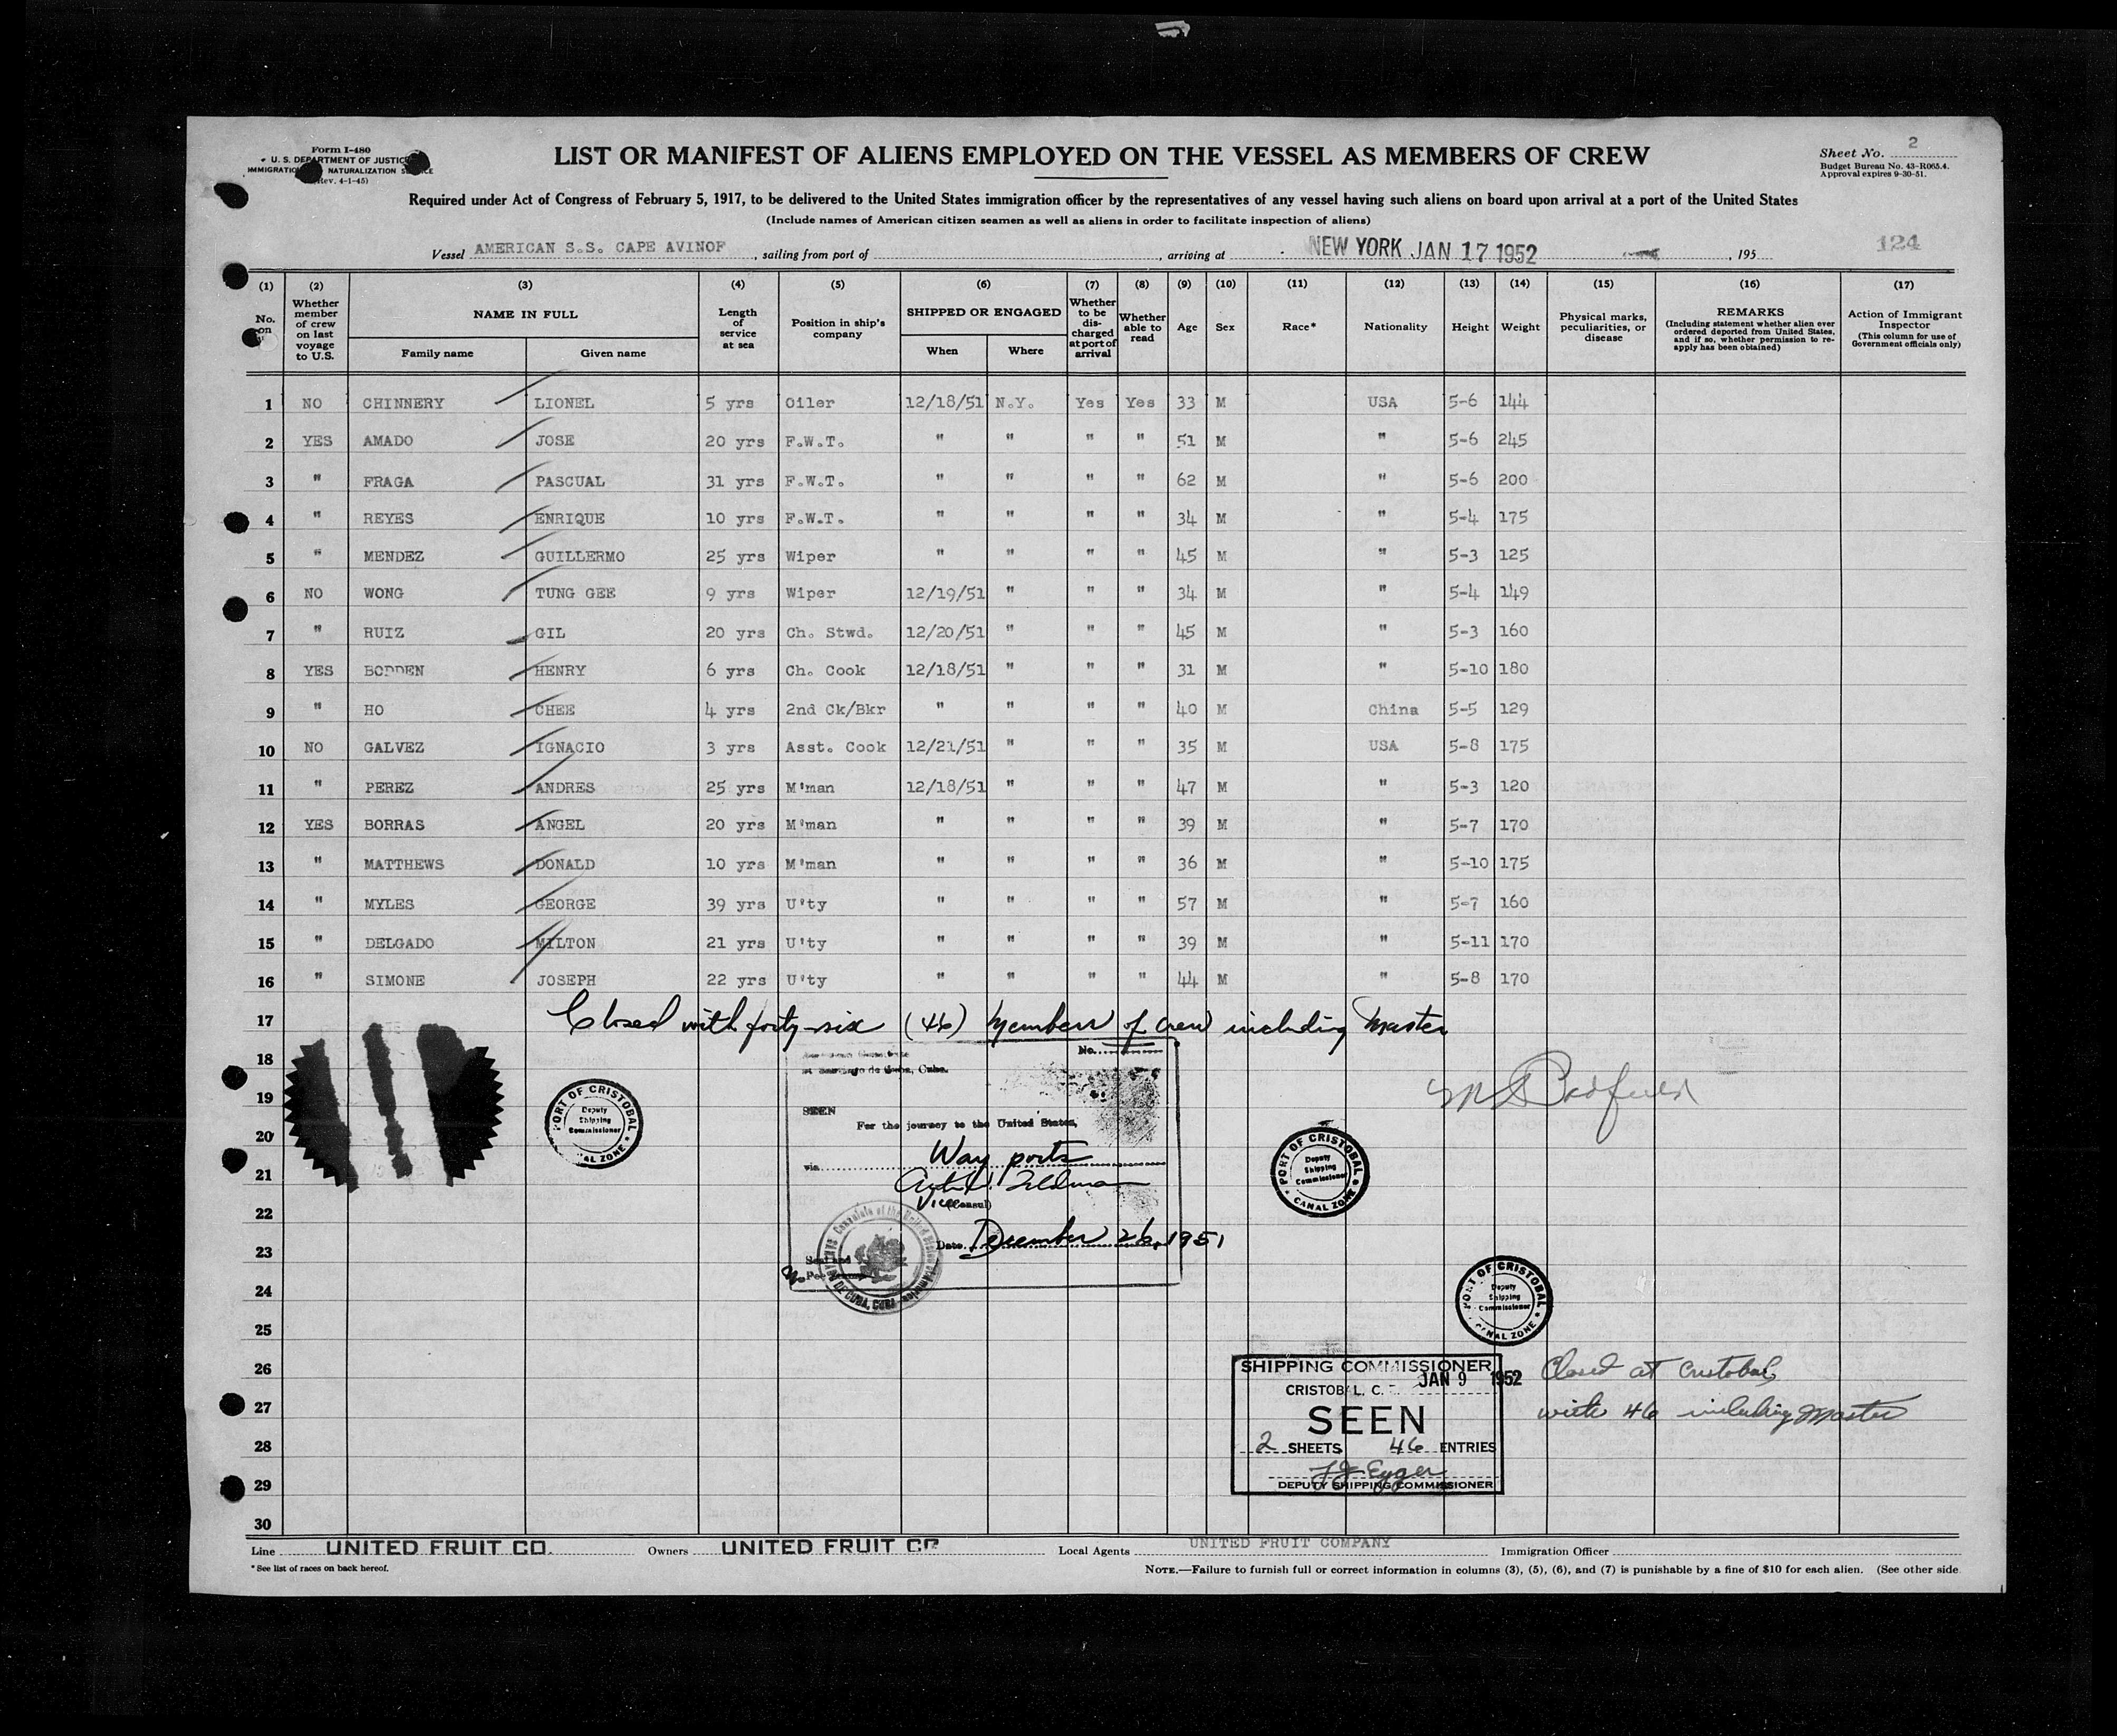 Form I-480
U. S. DEPARTMENT OF JUSTICE
IMMIGRATION NATURALIZATION SERVICE
(Rev. 4-1-45)
LIST OR MANIFEST OF ALIENS EMPLOYED ON THE VESSEL AS MEMBERS OF CREW
Sheet No. 2
Budget Bureau No. 43-R065.4.
Approval expires 9-30-51.
Required under Act of Congress of February 5, 1917, to be delivered to the United States immigration officer by the representatives of any vessel having such aliens on board upon arrival at a port of the United States
(Include names of American citizen seamen as well as aliens in order to facilitate inspection of aliens)
Vessel AMERICAN S.S. CAPE AVINOF, sailing from port of , arriving at NEW YORK JAN 17 1952, 195
124
(1) (2) (3) (4) (5) (6) (7) (8) (9) (10) (11) (12) (13) (14) (15) (16) (17)
No. on
Whether member of crew on last voyage to U.S.
NAME IN FULL
Family name Given name
Length of service at sea
Position in ship's company
SHIPPED OR ENGAGED
When Where
Whether to be discharged at port of arrival
Whether able to read
Age
Sex
Race*
Nationality
Height
Weight
Physical marks, peculiarities, or disease
REMARKS
(Including statement whether alien ever ordered deported from United States, and if so, whether permission to reapply has been obtained)
Action of Immigrant Inspector
(This column for use of Government officials only)
1 NO CHINNERY LIONEL 5 yrs Oiler 12/18/51 N.Y. Yes Yes 33 M USA 5-6 144
2 YES AMADO JOSE 20 yrs F.W.T. " " " " 51 M " 5-6 245
3 " FRAGA PASCUAL 31 yrs F.W.T. " " " " 62 M " 5-6 200
4 " REYES ENRIQUE 10 yrs F.W.T. " " " " 34 M " 5-4 175
5 " MENDEZ GUILLERMO 25 yrs Wiper " " " " 45 M " 5-3 125
6 NO WONG TUNG GEE 9 yrs Wiper 12/19/51 " " " 34 M " 5-4 149
7 " RUIZ GIL 20 yrs Ch. Stwd. 12/20/51 " " " 45 M " 5-3 160
8 YES BODDEN HENRY 6 yrs Ch. Cook 12/18/51 " " " 31 M " 5-10 180
9 " HO CHEE 4 yrs 2nd Ck/Bkr " " " " 40 M China 5-5 129
10 NO GALVEZ IGNACIO 3 yrs Asst. Cook 12/21/51 " " " 35 M USA 5-8 175
11 " PEREZ ANDRES 25 yrs M'man 12/18/51 " " " 47 M " 5-3 120
12 YES BORRAS ANGEL 20 yrs M'man " " " " 39 M " 5-7 170
13 " MATTHEWS DONALD 10 yrs M'man " " " " 36 M " 5-10 175
14 " MYLES GEORGE 39 yrs U'ty " " " " 57 M " 5-7 160
15 " DELGADO MILTON 21 yrs U'ty " " " " 39 M " 5-11 170
16 " SIMONE JOSEPH 22 yrs U'ty " " " " 44 M " 5-8 170
17 Closed with forty-six (46) Members of crew including Master
18
19
20
21
22
23
24
25
26
27
28
29
30
No.
at Santiago de Cuba, Cuba.
SEEN
For the journey to the United States,
via Way ports
Vice (Consul)
Date December 26, 1951
PORT OF CRISTOBAL
Deputy
Shipping
Commissioner
CANAL ZONE
PORT OF CRISTOBAL
Deputy
Shipping
Commissioner
CANAL ZONE
PORT OF CRISTOBAL
Deputy
Shipping
Commissioner
CANAL ZONE
SHIPPING COMMISSIONER
CRISTOBAL, C. JAN 9 1952
SEEN
2 SHEETS 46 ENTRIES
DEPUTY SHIPPING COMMISSIONER
Closed at Cristobal
with 46 including Master
Line UNITED FRUIT CO. Owners UNITED FRUIT CO Local Agents UNITED FRUIT COMPANY Immigration Officer
*See list of races on back hereof.
NOTE.—Failure to furnish full or correct information in columns (3), (5), (6), and (7) is punishable by a fine of $10 for each alien. (See other side